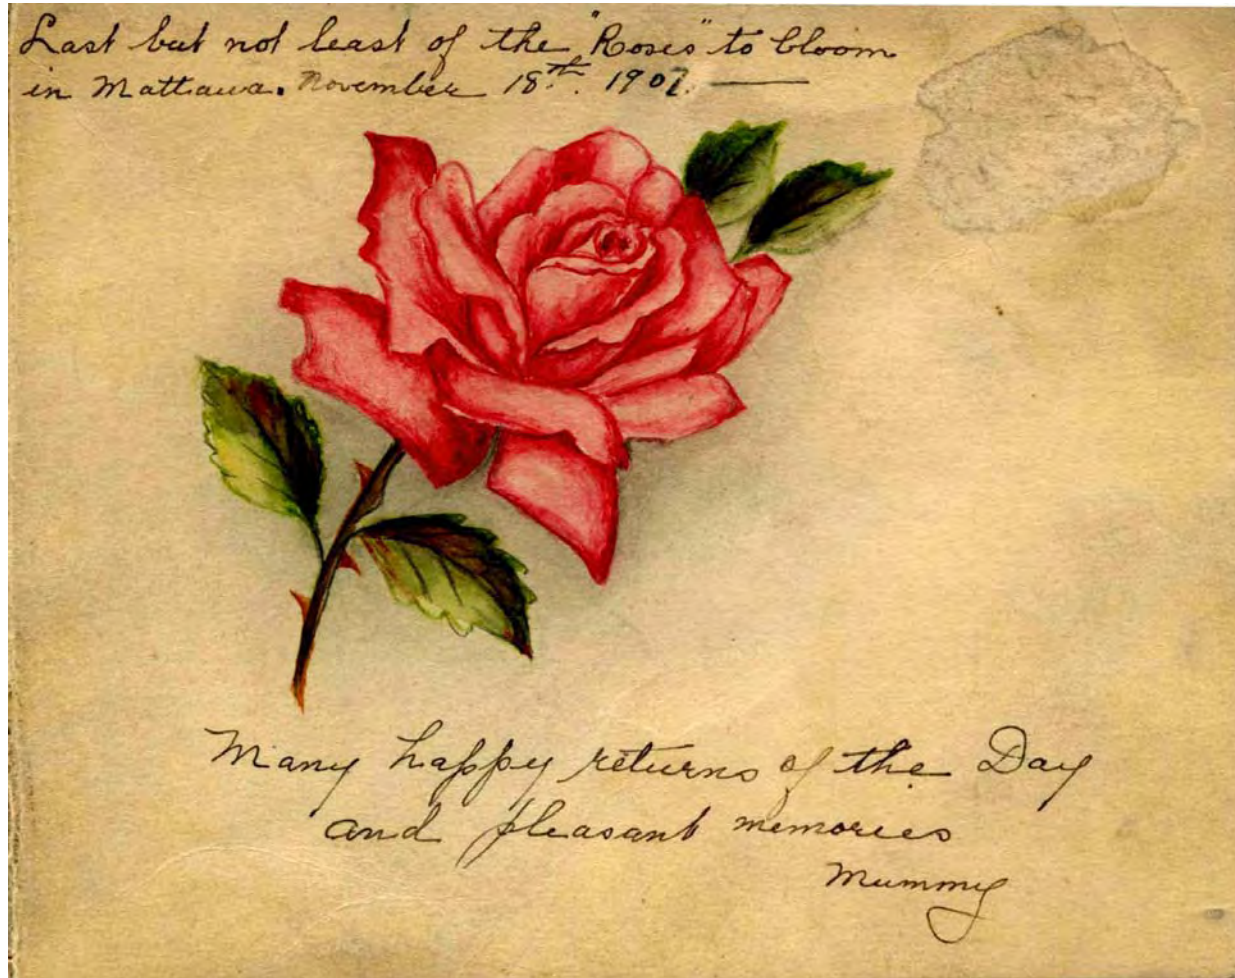 Last but not least of the "Roses" to bloom
in Mattawa. November 18th. 1907. —
Many happy returns of the Day
and pleasant memories
Mummy